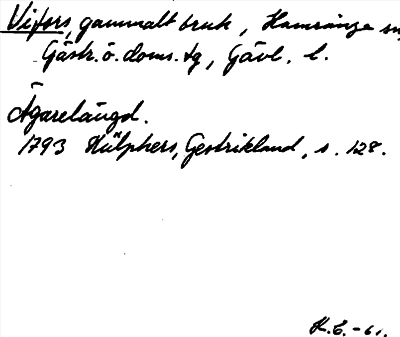 Vifors, gammalt bruk, Hamrånge sn,
Gästr. ö. doms. tg, Gävl. l.
Ägarelängd.
1793 Hülphers, Gestrikland, s. 128.
K.E.-61.